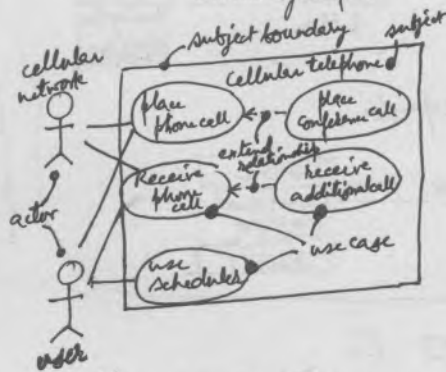 subject boundary
subject
cellular
network
cellular telephone
place
phone call
place
conference call
extend
relationship
Receive
phone
call
receive
additional call
actor
use case
use
schedules
user